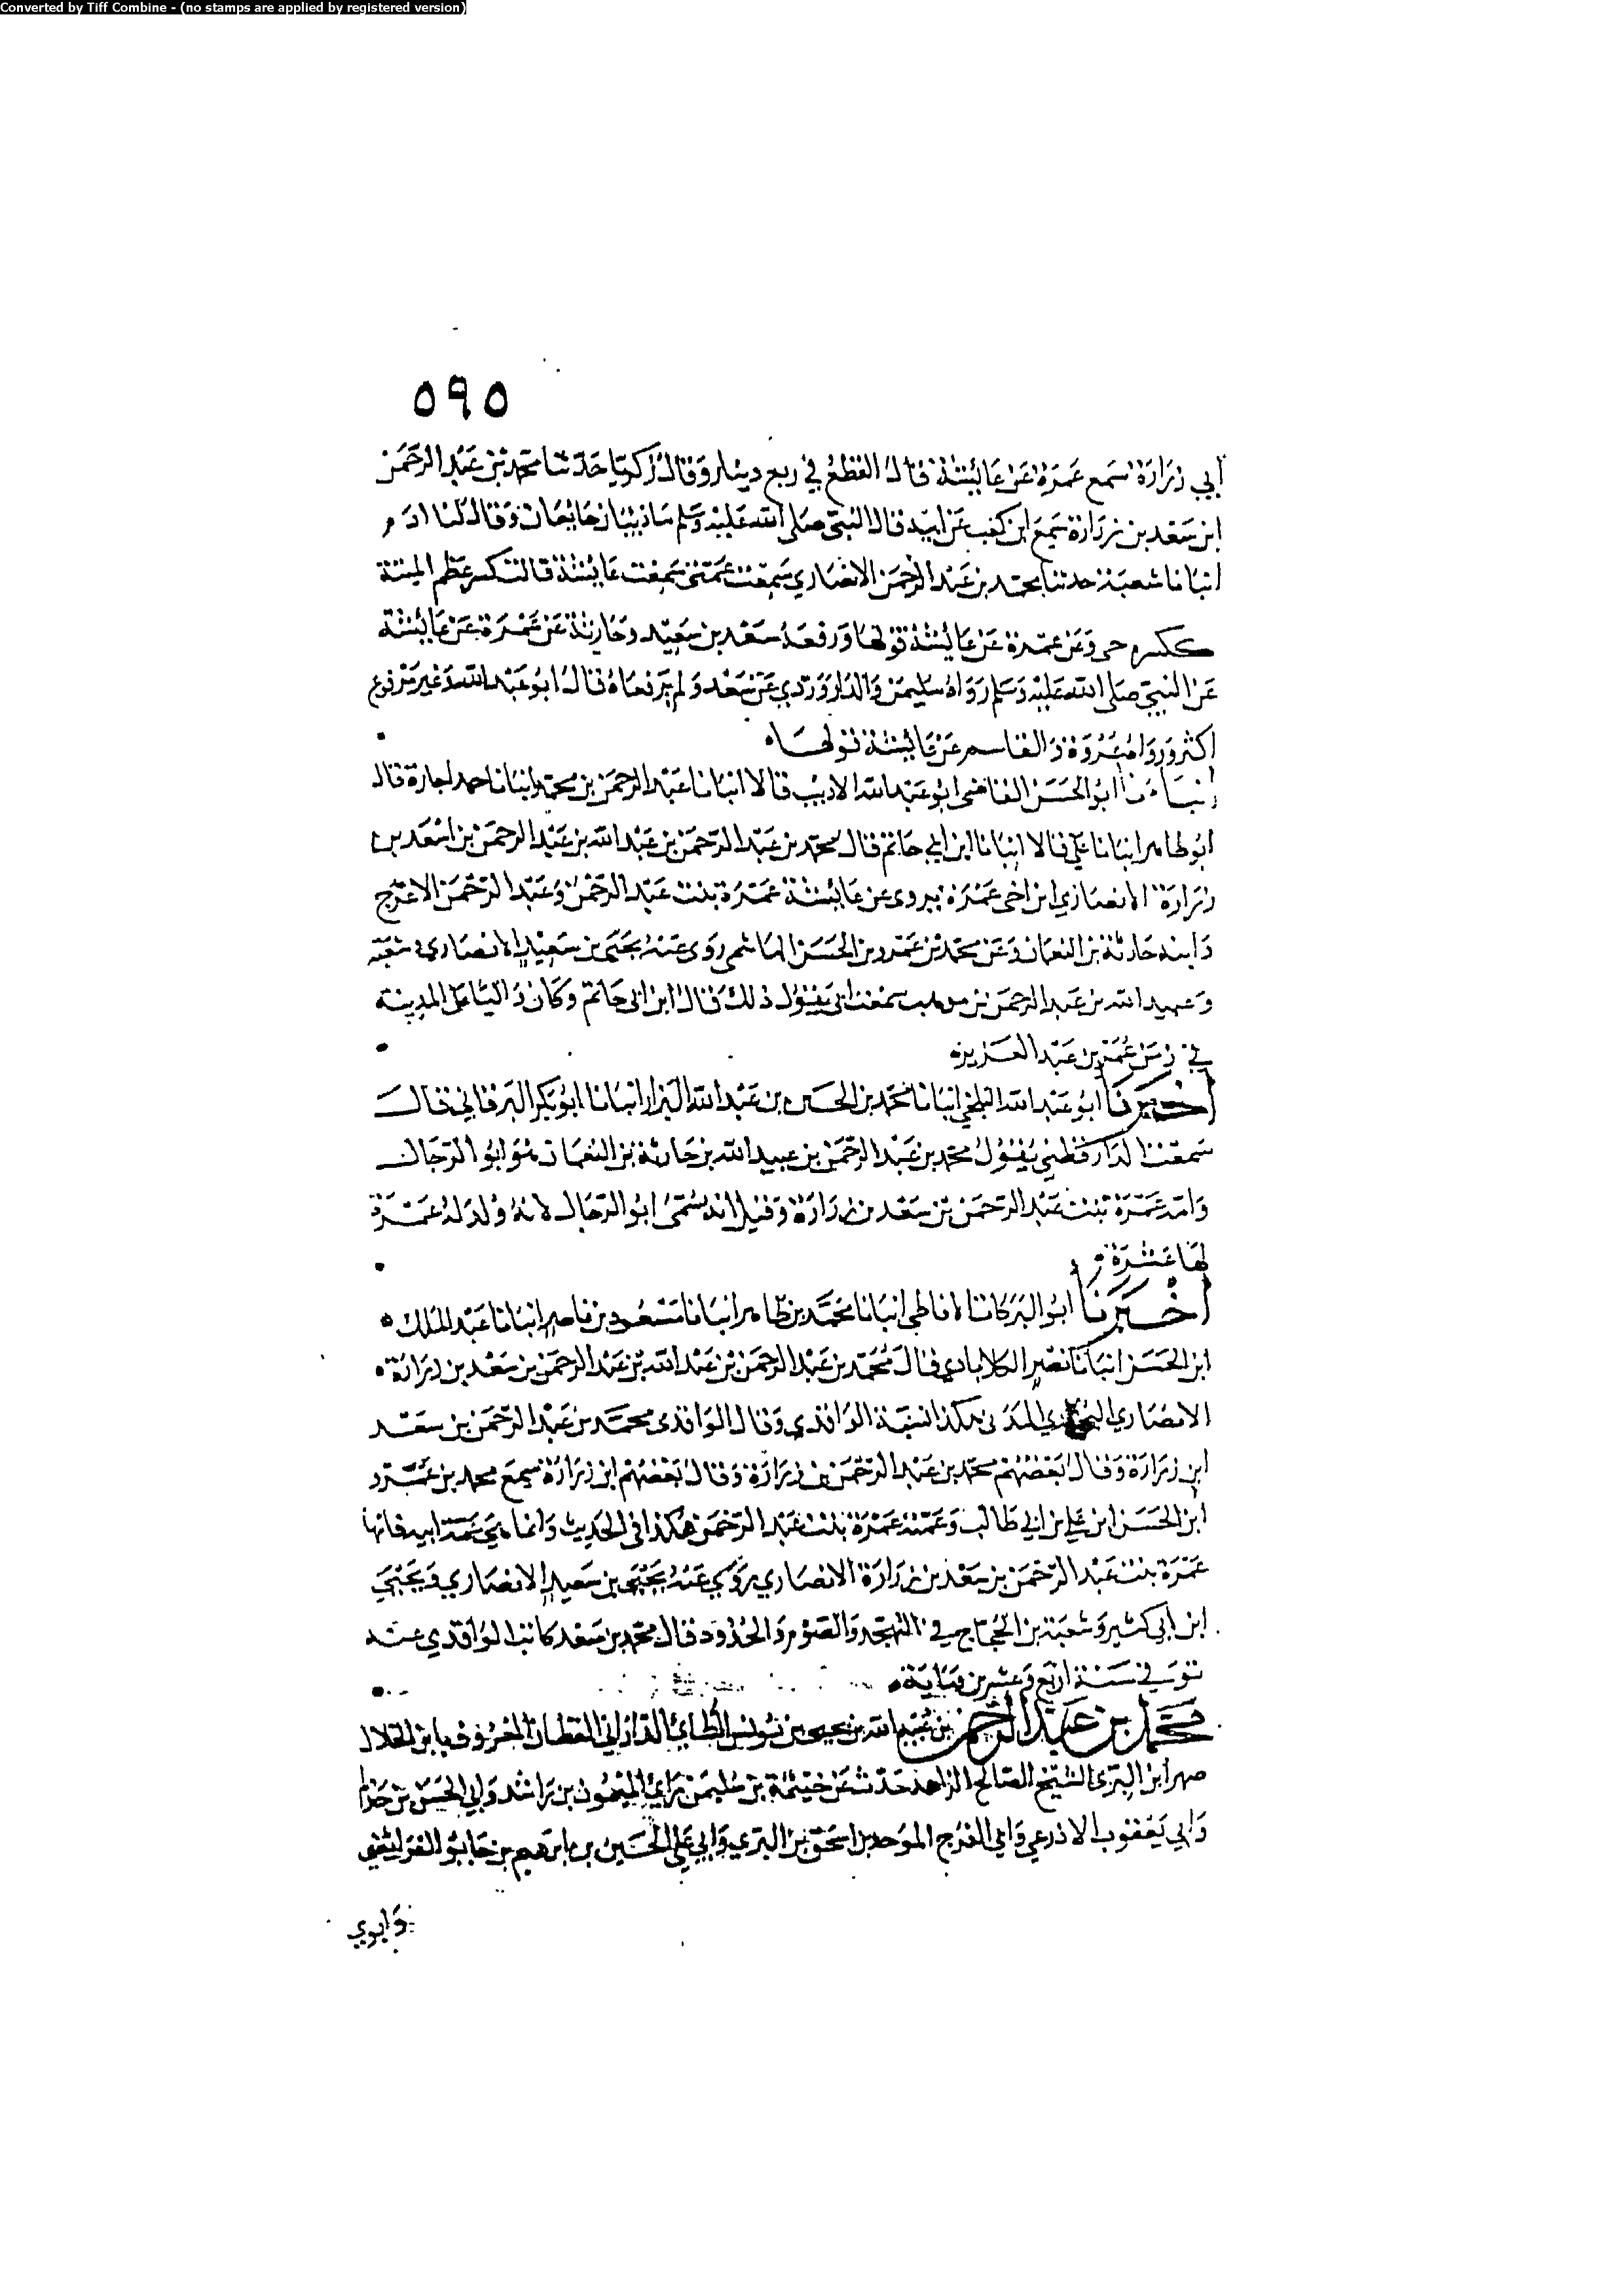 Converted by Tiff Combine - (no stamps are applied by registered version)
٥٩٥
ابي زرارة سمع عمرة عن عائشة قال القطع في ربع دينار وقال زكريا حدثنا محمد بن عبد الرحمن
ابن سعد بن زرارة سمع ابن كعب عن ابيه قال النبي صلى الله عليه وسلم ماذيبان جايعان وقال لنا ادم
انبانا شعبة حدثنا محمد بن عبد الرحمن الانصاري سمعت عمتي سمعت عائشة قالت كسر عظم الميتة
ككسره حي وعن عمرة عن عائشة قولها ورفعه سعد بن سعيد وحارثة عن عمرة عن عائشة
عن النبي صلى الله عليه وسلم رواه سليمن والداروردي عن سعد ولم يرفعاه قال ابو عبد الله غير مرفوع
اكثر ورواه عروة والقاسم عن عائشة قولها
انبانا ابو الحسن القاضي ابو عبد الله الاديب قالا انبانا عبد الرحمن بن محمد انبانا حمد اجازة قال
ابو طاهر انبانا علي قالا انبانا ابن ابي حاتم قال محمد بن عبد الرحمن بن عبد الله بن عبد الرحمن بن اسعد بن
زرارة الانصاري ابن اخي عمرة يروي عن عائشة عمرة بنت عبد الرحمن وعبد الرحمن الاعرج
وابنه حارثة بن النعمان وعن محمد بن عمرو بن الحسن الهاشمي روى عنه يحيى بن سعيد الانصاري وشعبة
وعبيد الله بن عبد الرحمن بن موهب سمعت ابي يقول ذلك قال ابن ابي حاتم وكان واليا على المدينة
في زمن عمر بن عبد العزيز
اخبرنا ابو عبد الله البلخي انبانا محمد بن الحسن بن عبد الله البزار انبانا ابو بكر البرقاني قال
سمعت الدارقطني يقول محمد بن عبد الرحمن بن عبيد الله بن حارثة بن النعمان هو ابو الرجال
وامه عمرة بنت عبد الرحمن بن سعد بن زرارة وقيل انه سمى ابو الرجال لانه ولد له عمرة
لها عشرة
اخبرنا ابو البركات الانماطي انبانا محمد بن طاهر انبانا مسعود بن ناصر انبانا عبد الملك
ابن الحسن انبانا نصير الكلاباذي قال محمد بن عبد الرحمن بن عبد الله بن عبد الرحمن بن سعد بن زرارة
الانصاري المدني هكذا نسبة الواقدي وقال الواقدي محمد بن عبد الرحمن بن سعد
ابن زرارة وقال بعضهم محمد بن عبد الرحمن بن زرارة وقال بعضهم ابن زرارة سمع محمد بن عمرو
ابن الحسن ابن علي بن ابي طالب وعمته عمرة بنت عبد الرحمن هكذا في الحديث وانما هي عمة ابيه فانها
عمرة بنت عبد الرحمن بن سعد بن زرارة الانصاري روى عنه يحيى بن سعيد الانصاري ويحيى
ابن ابي كثير وشعبة بن الحجاج في التهجد والصوم والحدود قال محمد بن سعد كاتب الواقدي عنه
توفي في سنة اربع وعشرين ومايه
محمد بن عبد الرحمن بن عبيد الله بن يحيى بن يونس الطائي الداراني القطان المعروف بابن الخلال
صهر ابن البري الشيخ الصالح الزاهد حدث عن خيثمة بن سليمن وابي الميمون بن راشد وابي الحسن بن حذلم
وابي يعقوب الاذرعي وابي الفرج الموحد بن اسحق بن البري وابي علي الحسين بن ابرهيم بن جابر الفرايضي
وابوي